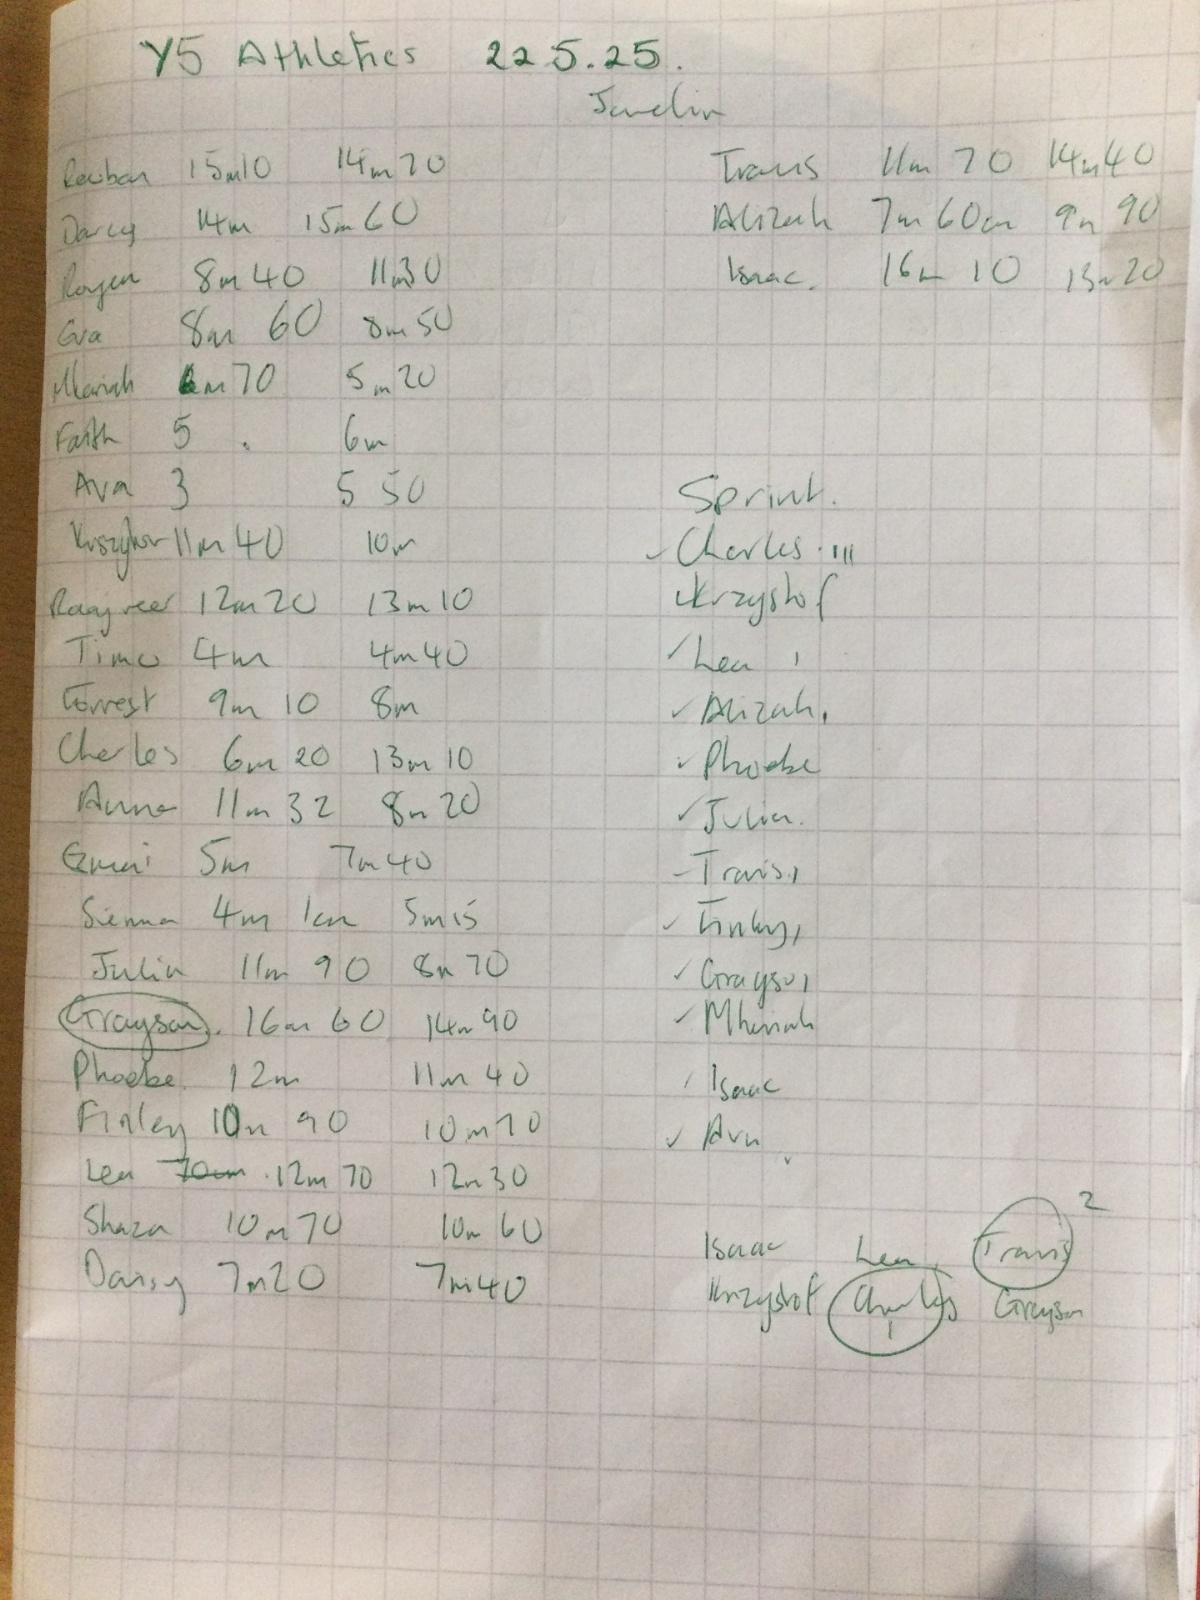 Y5 Athletics 22.5.25.
Javelin
Reuban 15m10 14m70
Darcy 14m 15m60
Rayen 8m40 11m30
Eva 8m 60 8m50
Mheirah 6m70 5m20
Faith 5 . 6m
Ava 3 5 50
11m40 10m
Raajveer 12m20 13m10
Timo 4m 4m40
Forrest 9m 10 8m
Charles 6m 20 13m 10
Anna 11m 32 8m 20
5m 7m40
Sienna 4m 1cm 5m15
Julia 11m 90 8m 70
Grayson. 16m 60 14m90
Phoebe. 12m 11m 40
Finley 10m 90 10m70
Lea 70cm .12m 70 12m30
Shaza 10m70 10m 60
Daisy 7m20 7m40
Travis 11m 70 14m40
Alizah 7m60cm 9m 90
Isaac. 16m 10 13m20
Sprint.
Charles . III
Krzystof
Lea I
Alizah I
Phoebe
Julia.
Travis I
Finley I
Grayson I
Mheirah
Isaac
Ava
Isaac Lea Travis 2
Krzystof Charles 1 Grayson